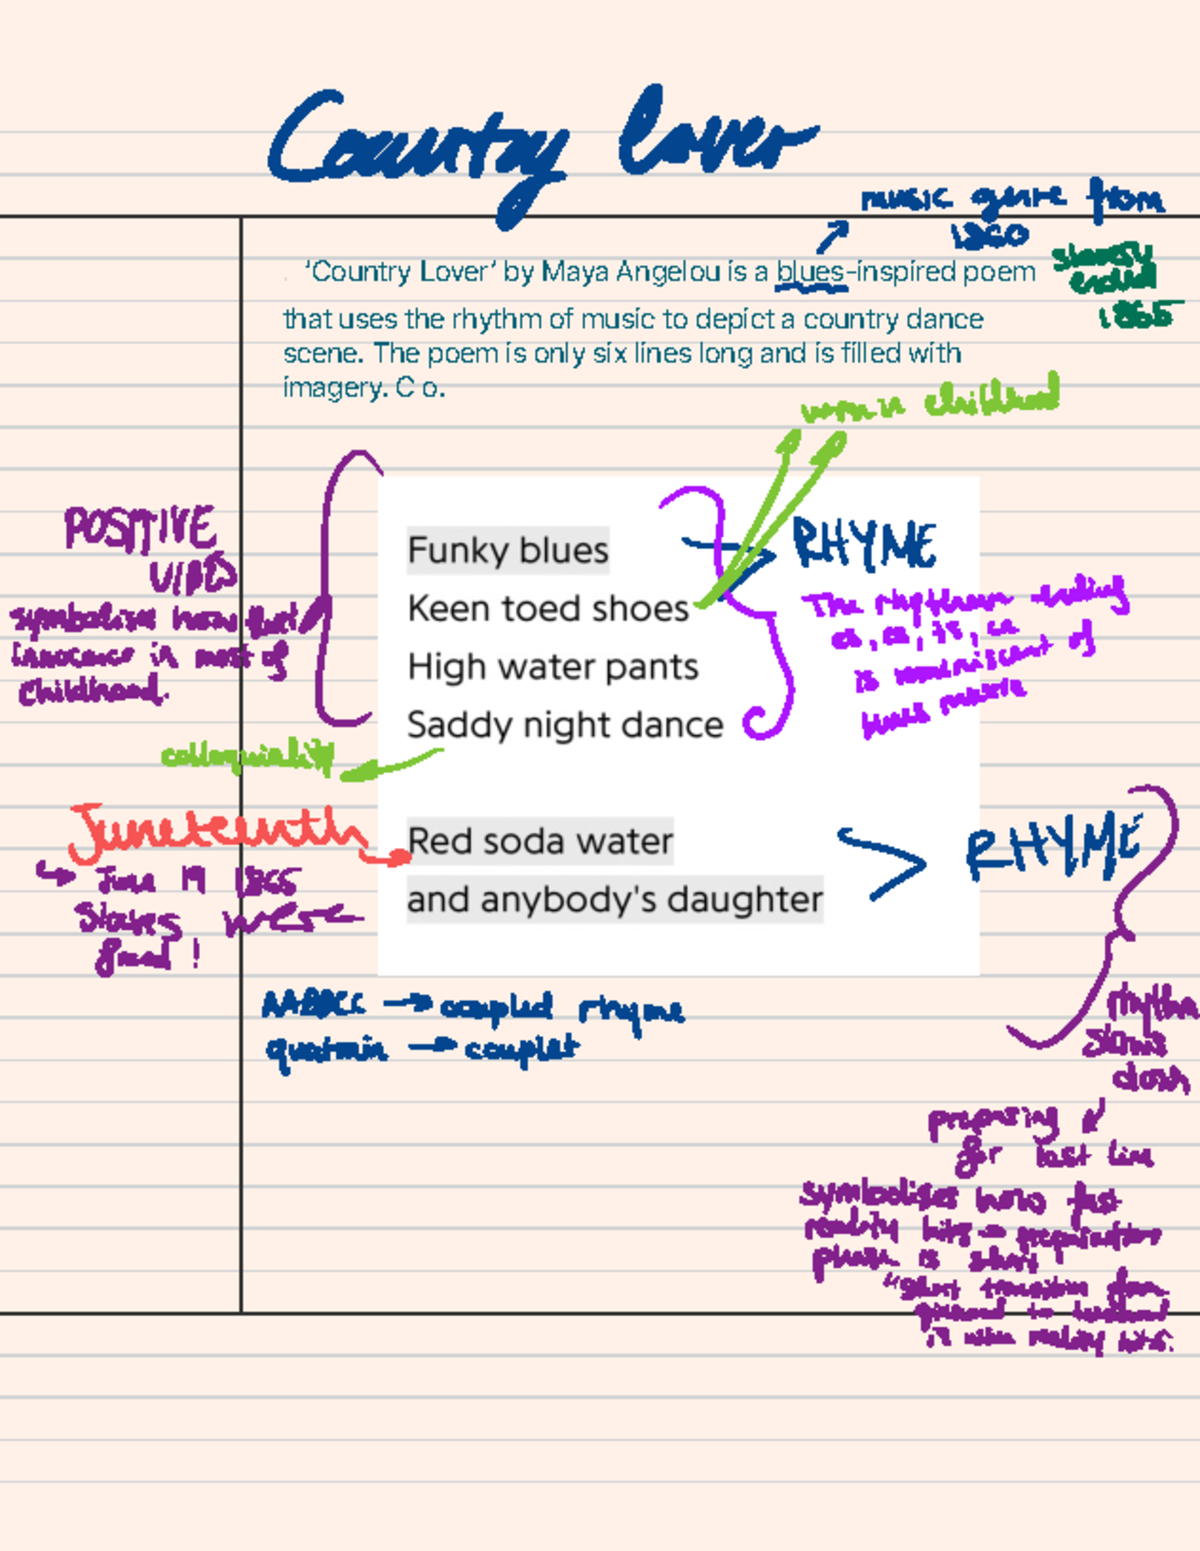 Country lover
music genre from
1860
slavery
ended
1865
'Country Lover' by Maya Angelou is a blues-inspired poem
that uses the rhythm of music to depict a country dance
scene. The poem is only six lines long and is filled with
imagery. C o.
worn in childhood
POSITIVE
VIBES
symbolises how
innocence in most of
childhood.
Funky blues
Keen toed shoes
High water pants
Saddy night dance
RHYME
The rhythm
is reminiscent of
blues music
colloquiality
Juneteenth
↳ June 19 1865
Slaves were
freed!
Red soda water
and anybody's daughter
RHYME
AABBCC → coupled rhyme
quatrain → couplet
rhythm
slows
down
preparing
for last line
symbolises how fast
reality hits → preparation
phase is short
"short transition from
to
is when reality hits.